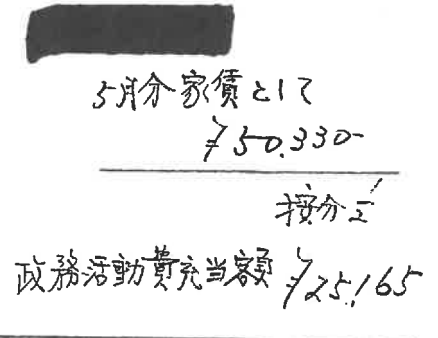 5月分家賃として
¥50.330-
按分1/2
政務活動費充当額 ¥25,165